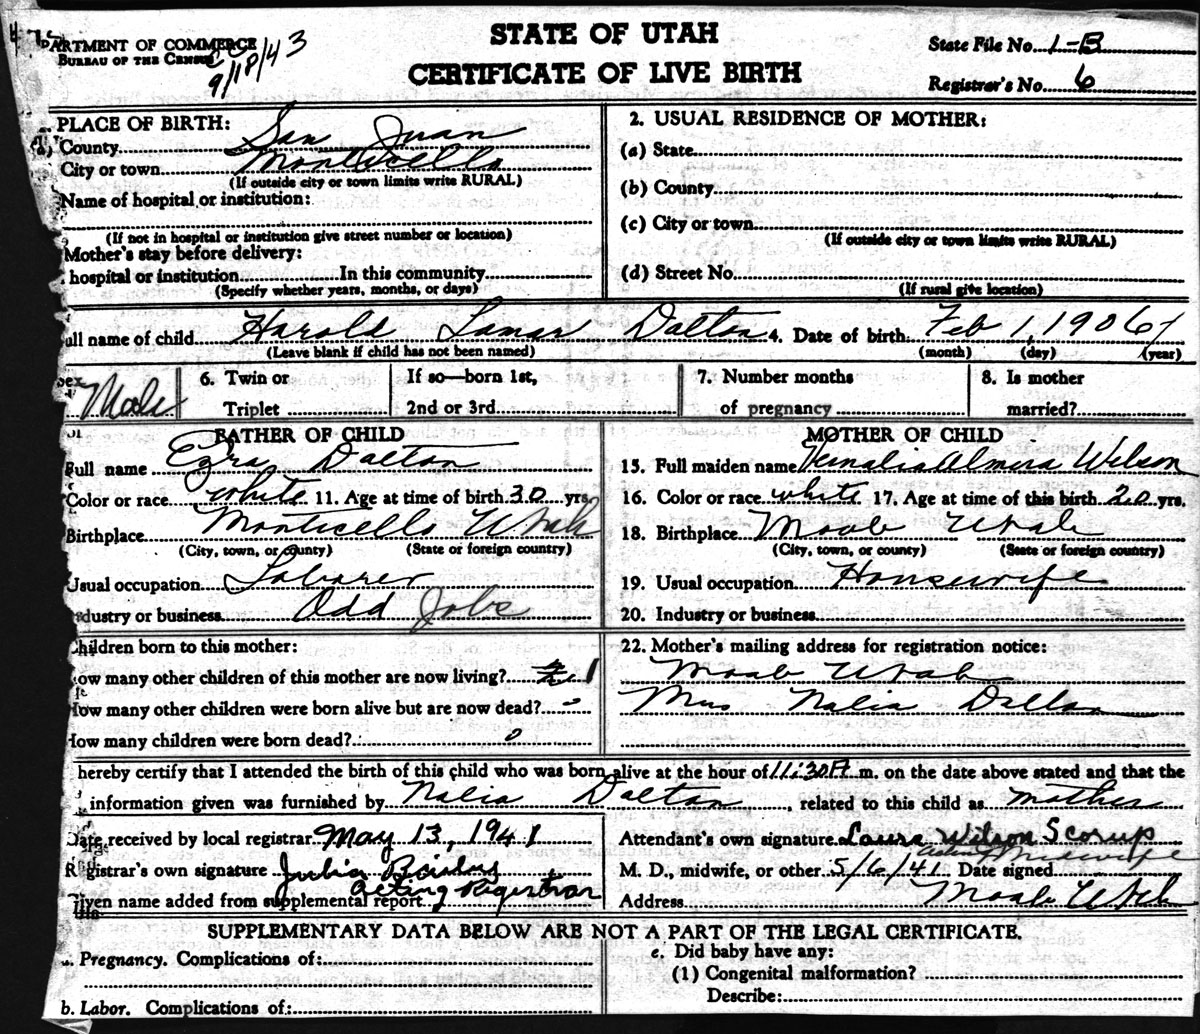 STATE OF UTAH
CERTIFICATE OF LIVE BIRTH
PARTMENT OF COMMERCE
BUREAU OF THE CENSUS
9/18/43
State File No. 1-B
Registrar's No. 6
PLACE OF BIRTH:
County San Juan
City or town Monticello
(If outside city or town limits write RURAL)
Name of hospital or institution:
(If not in hospital or institution give street number or location)
Mother's stay before delivery:
hospital or institution In this community
(Specify whether years, months, or days)
2. USUAL RESIDENCE OF MOTHER:
(a) State
(b) County
(c) City or town
(If outside city or town limits write RURAL)
(d) Street No.
(If rural give location)
ull name of child Harold Lamar Dalton 4. Date of birth Feb 1, 1906
(Leave blank if child has not been named) (month) (day) (year)
sex Male
6. Twin or Triplet
If so—born 1st, 2nd or 3rd
7. Number months of pregnancy
8. Is mother married?
FATHER OF CHILD
Full name Ezra Dalton
Color or race white 11. Age at time of birth 30 yrs.
Birthplace Monticello Utah
(City, town, or county) (State or foreign country)
Usual occupation Laborer
Industry or business Odd Jobs
MOTHER OF CHILD
15. Full maiden name Almira Wilson
16. Color or race white 17. Age at time of this birth 20 yrs.
18. Birthplace Moab Utah
(City, town, or county) (State or foreign country)
19. Usual occupation Housewife
20. Industry or business
Children born to this mother:
ow many other children of this mother are now living? 1
How many other children were born alive but are now dead? 0
How many children were born dead? 0
22. Mother's mailing address for registration notice:
Moab Utah
Mrs Nalia Dalton
hereby certify that I attended the birth of this child who was born alive at the hour of 11:30 P. m. on the date above stated and that the
information given was furnished by Nalia Dalton, related to this child as mother
Date received by local registrar May 13, 1941
Registrar's own signature Julia
acting Registrar
Given name added from supplemental report
Attendant's own signature Laura Wilson Scorup
acting Midwife
M. D., midwife, or other 5/6/41 Date signed
Address Moab Utah
SUPPLEMENTARY DATA BELOW ARE NOT A PART OF THE LEGAL CERTIFICATE.
a. Pregnancy. Complications of:
b. Labor. Complications of:
c. Did baby have any:
(1) Congenital malformation?
Describe: